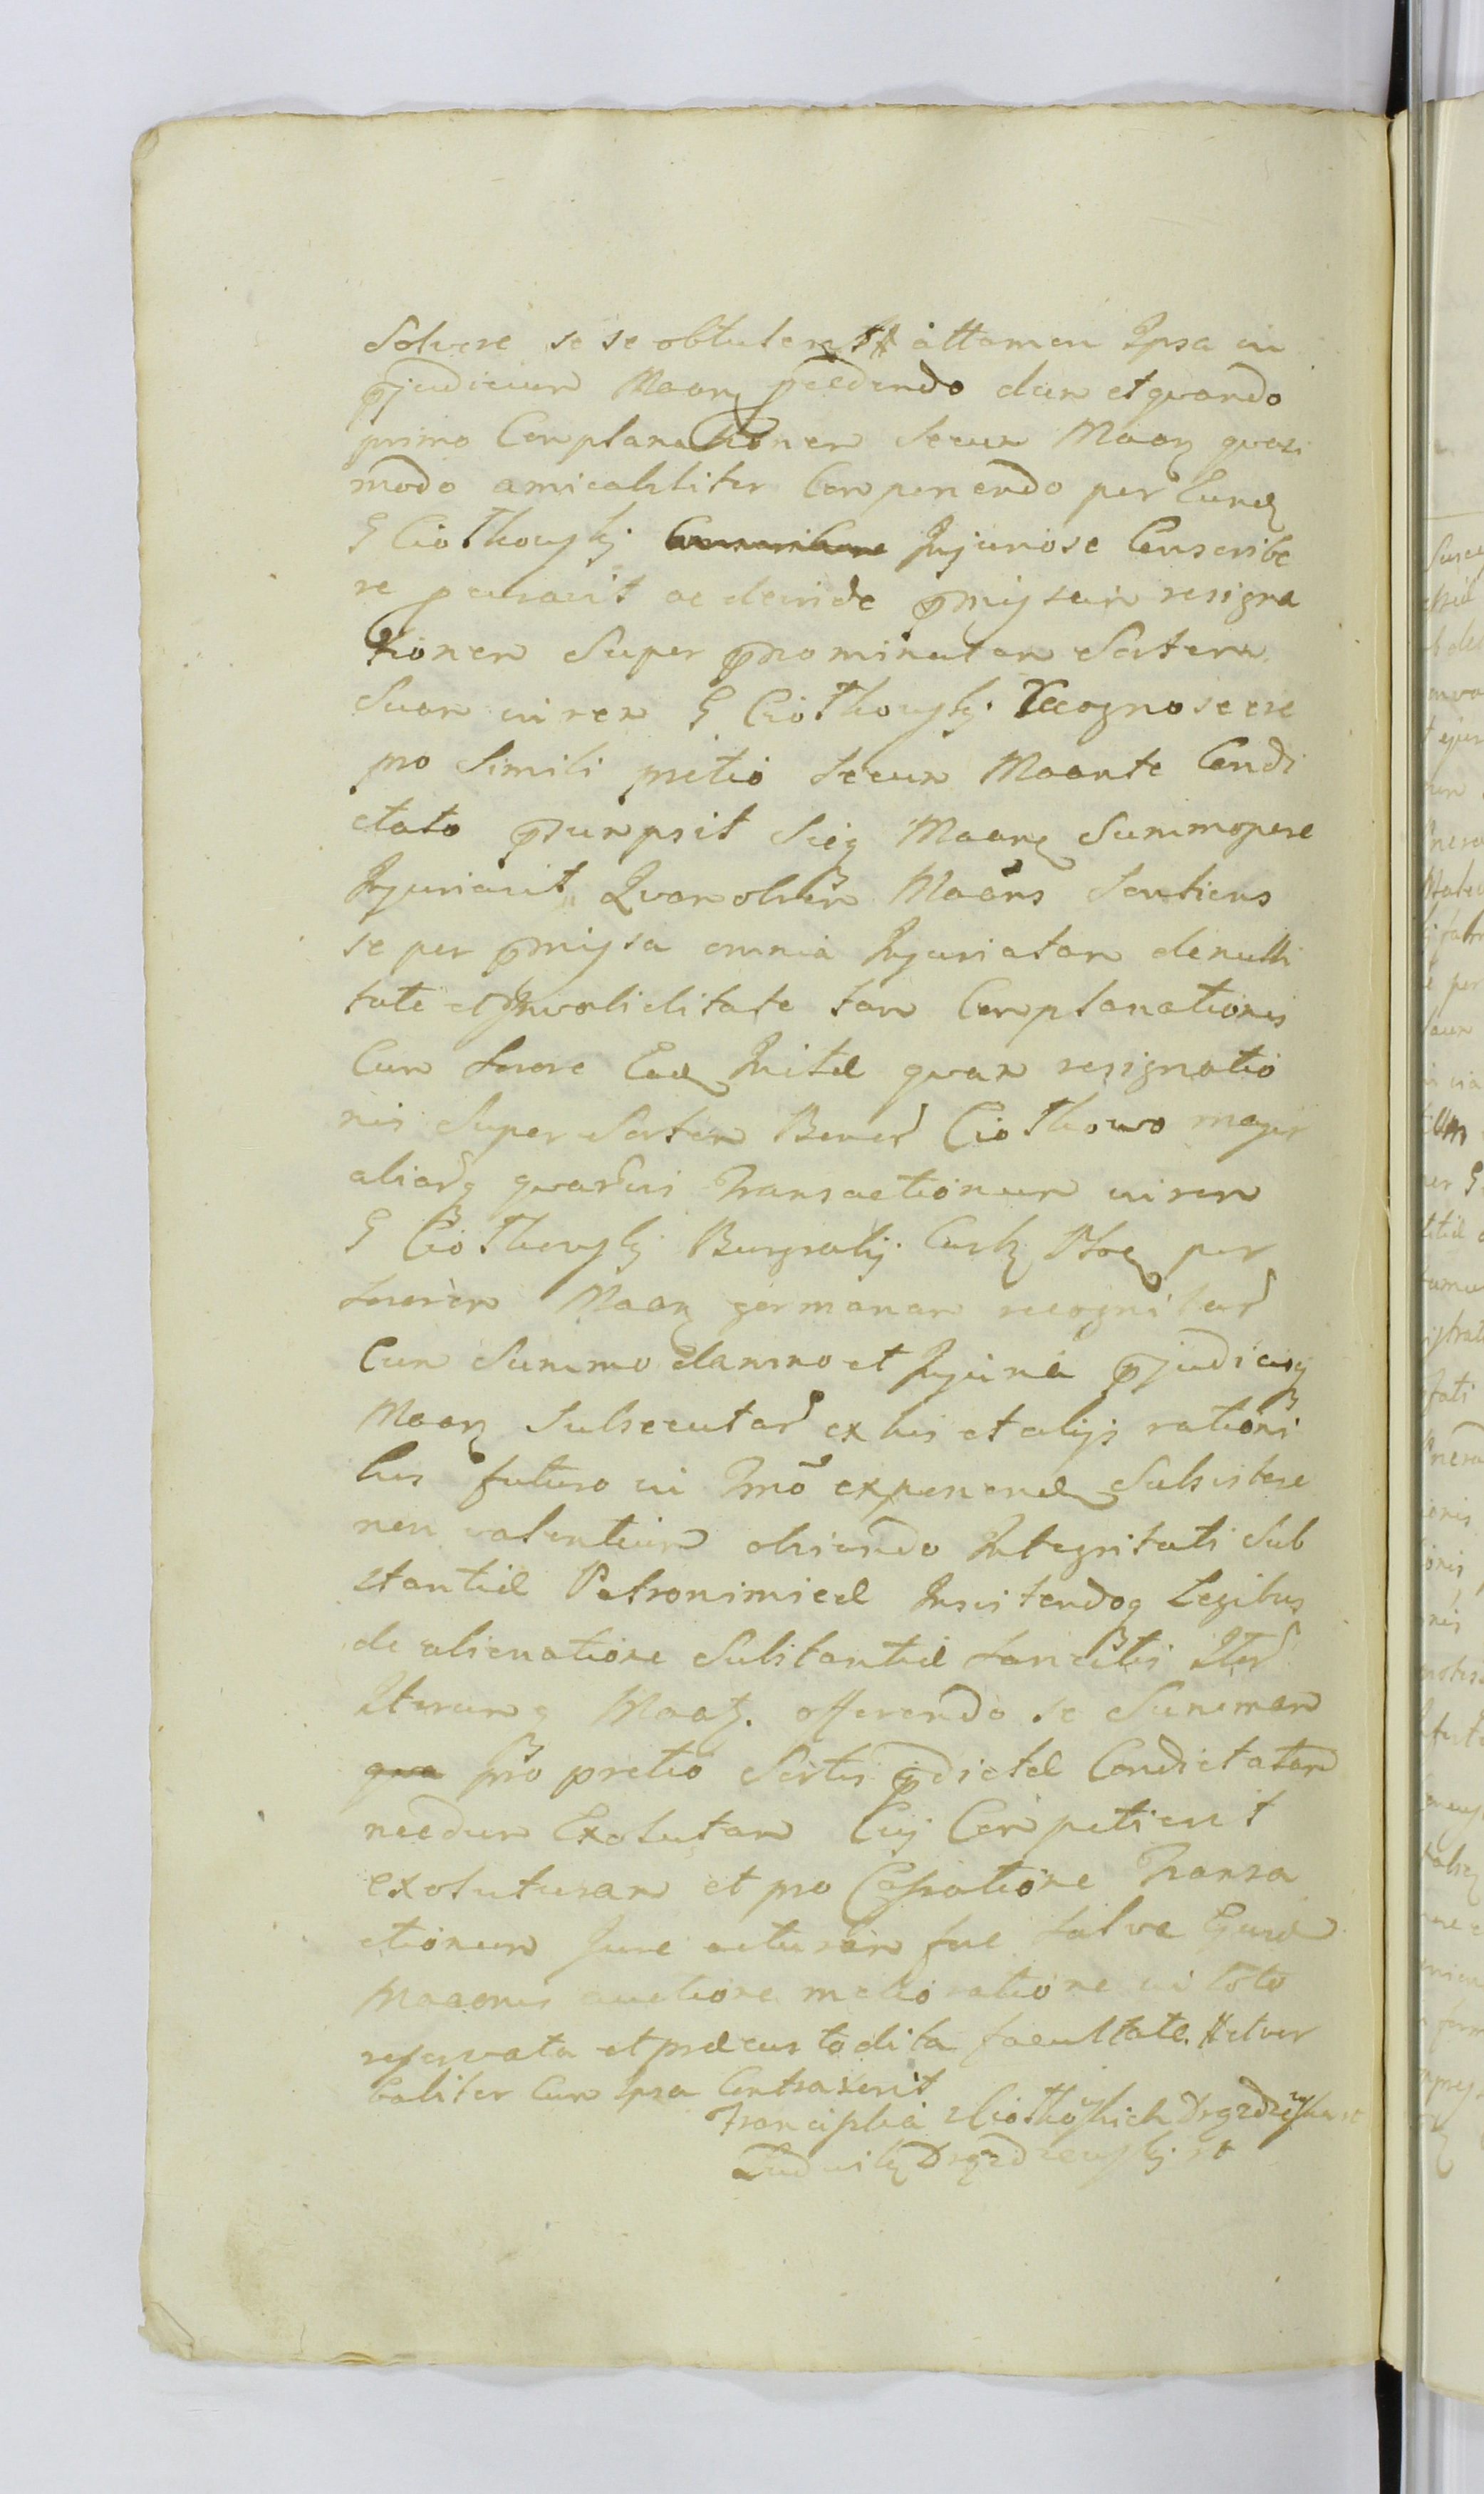 Solvere se se obtulerit attamen Ipsa in
pjudicium Maan pcedendo dum et quando
primo Complanationem secum Maan quasi
modo amicabiliter Componendo per Eund
G Ciołkowskj Injuriose Conscribe
re pcuravit ac deinde pmissam resigna
tionem Super pnominatam Sortem
Suam in rem G Ciołkowskj recognoscere
pro Simili pretio secum Maante Condi
ctato psumpsit Sicq Maan Summopere
Injuriavit, Quamobrem Maans Sentiens
se per pmissa omnia Injuriatam de nulli
tate et Invaliditate tam Complanationis
Cum Sorore Ead Initæ quam resignatio
nis Super Sortem Bonor Ciołkowo major
aliarq quarvis Transactionum in rem
G Ciołkowskj Burgrabij Castr Ploc per
Sororem Maan germanam recognitar
Cum Summo damno et Injuria pjudicioq
Maan Subsecutar ex his et alijs rationi
bus futuro in Tmo exponend Subsistere
non valentium obviando Integritati Sub
stantiæ Patronimicæ Insistendoq Legibus
de alienatione Substantiæ Sancitis Iter
Iterumq Maas. offerendo se Summam
qua pro pretio Sortis pdictæ Condictatam
necdum Exolutam Cuj Competierit
exoluturam et pro Cassatione Transa
ctionum Jure acturam fore Salva Ejusd
Maaonis auctione melioratione in toto
reservata et præcustodita facultate. Et ver
baliter Cum Ipsa Contraxerit
Franciszka z Ciołkoskich Drozdzeska
Ludwik Drozdzewskj